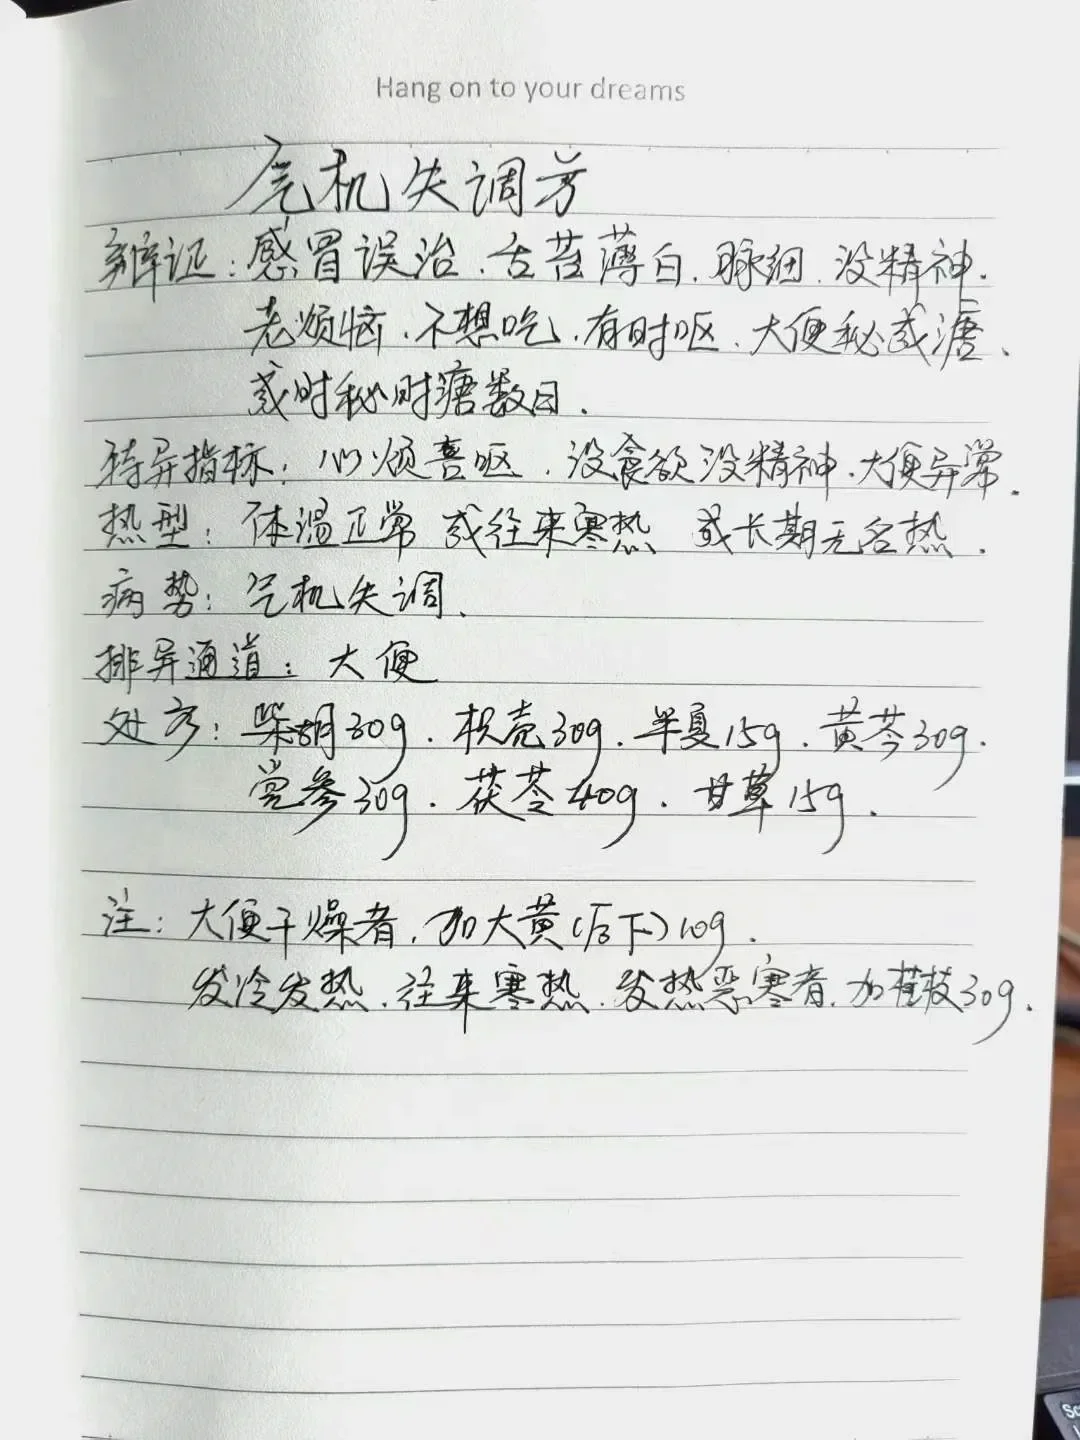 Hang on to your dreams
气机失调方
辩证：感冒误治、舌苔薄白、脉细、没精神、
老烦恼、不想吃、有时呕、大便秘或溏、
或时秘时溏数日.
特异指标：心烦喜呕、没食欲没精神、大便异常.
热型：体温正常 或往来寒热 或长期无名热.
病势：气机失调、
排异通道：大便
处方：柴胡30g、枳壳30g、半夏15g、黄芩30g、
党参30g、茯苓40g、甘草15g.
注：大便干燥者，加大黄(后下)10g.
发冷发热、往来寒热、发热恶寒者，加桂枝30g.